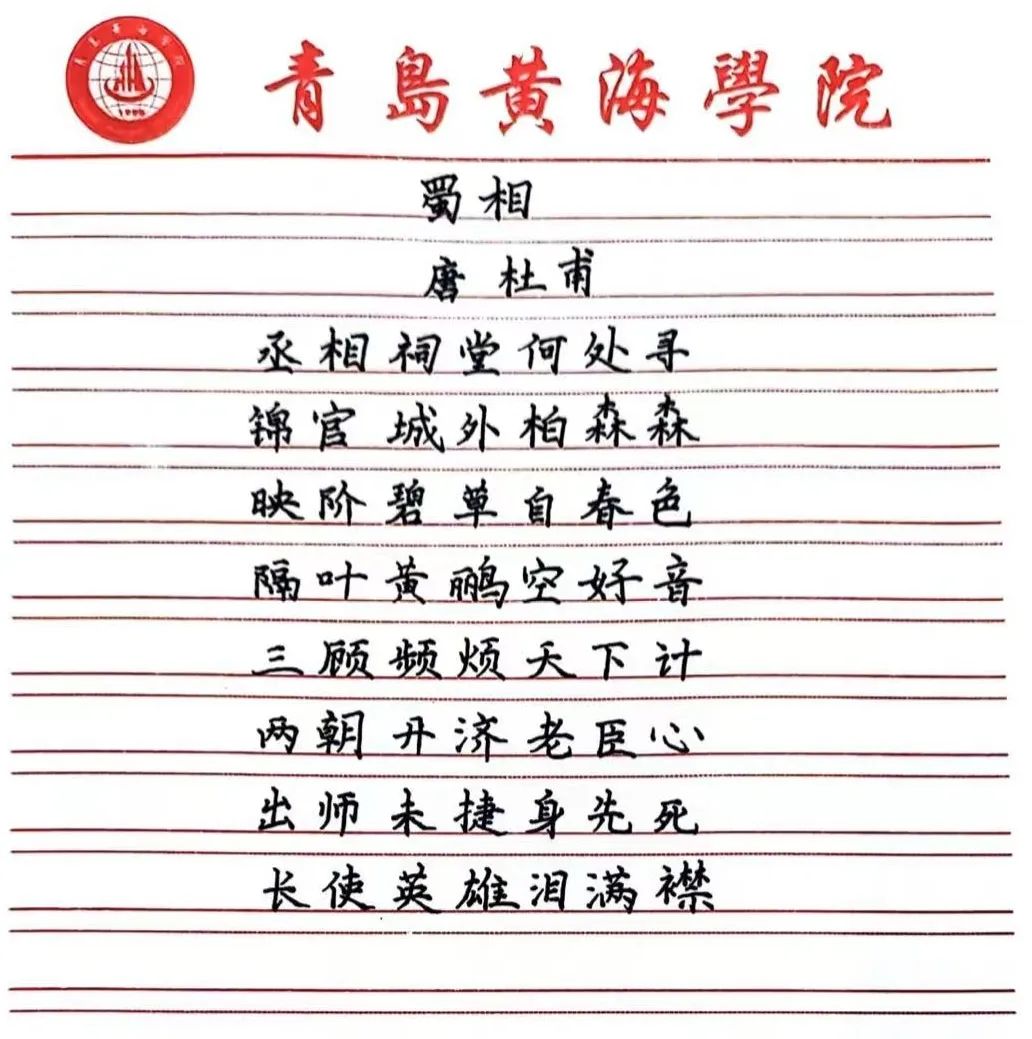 青島黄海學院
1996
蜀相
唐 杜甫
丞相祠堂何处寻
锦官城外柏森森
映阶碧草自春色
隔叶黄鹂空好音
三顾频烦天下计
两朝开济老臣心
出师未捷身先死
长使英雄泪满襟